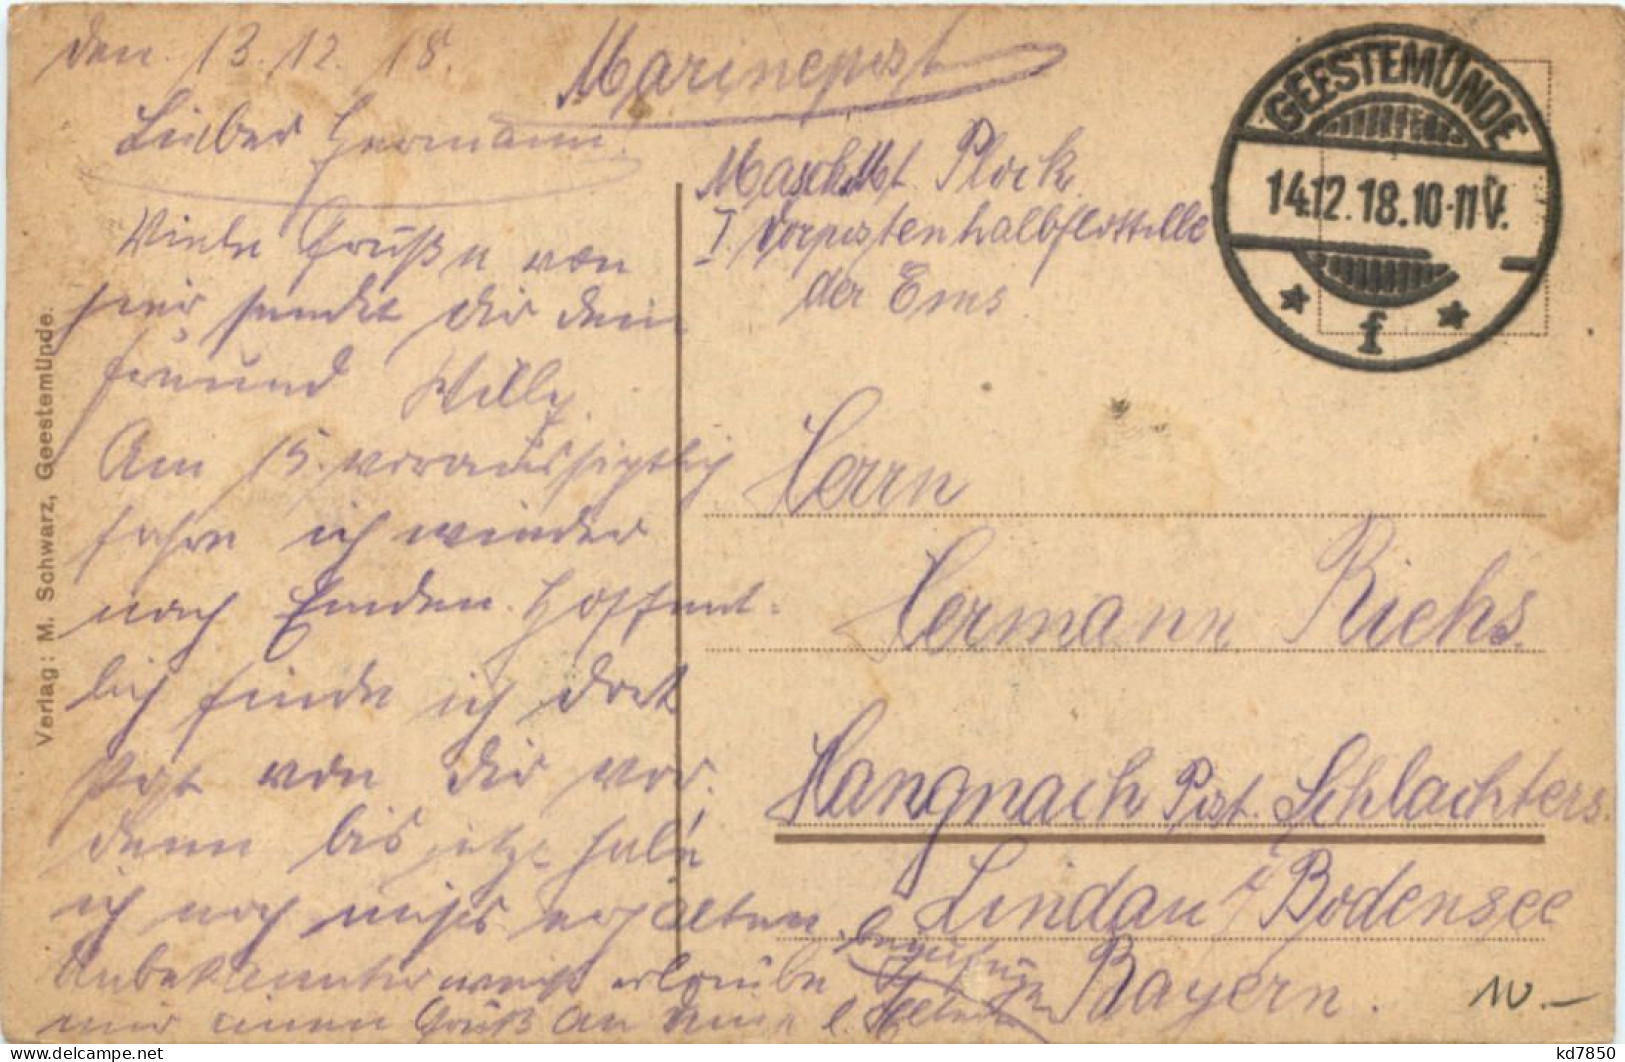 den 13.12.18.
Marinepost
Lieber Hermann.
Masch.Mt. Plock
I. Vorpostenhalbflottille
der Ems
GEESTEMÜNDE
14.12.18.10-11V.
f
Viele Grüße von
hier sendet Dir dein
Freund Willy.
Am 15. voraussichtlich
fahre ich wieder
nach Emden. Hoffent-
lich finde ich dort
Post von Dir vor.
denn bis jetzt habe
ich noch nichts erhalten
Unbekannterweise erlaube
mir einen Gruß an deine l. Eltern
Herrn
Hermann Riehs.
Hangnach Post. Schlachters.
Lindau i/Bodensee
Bayern.
10.-
Verlag: M. Schwarz, Geestemünde.
kd7850